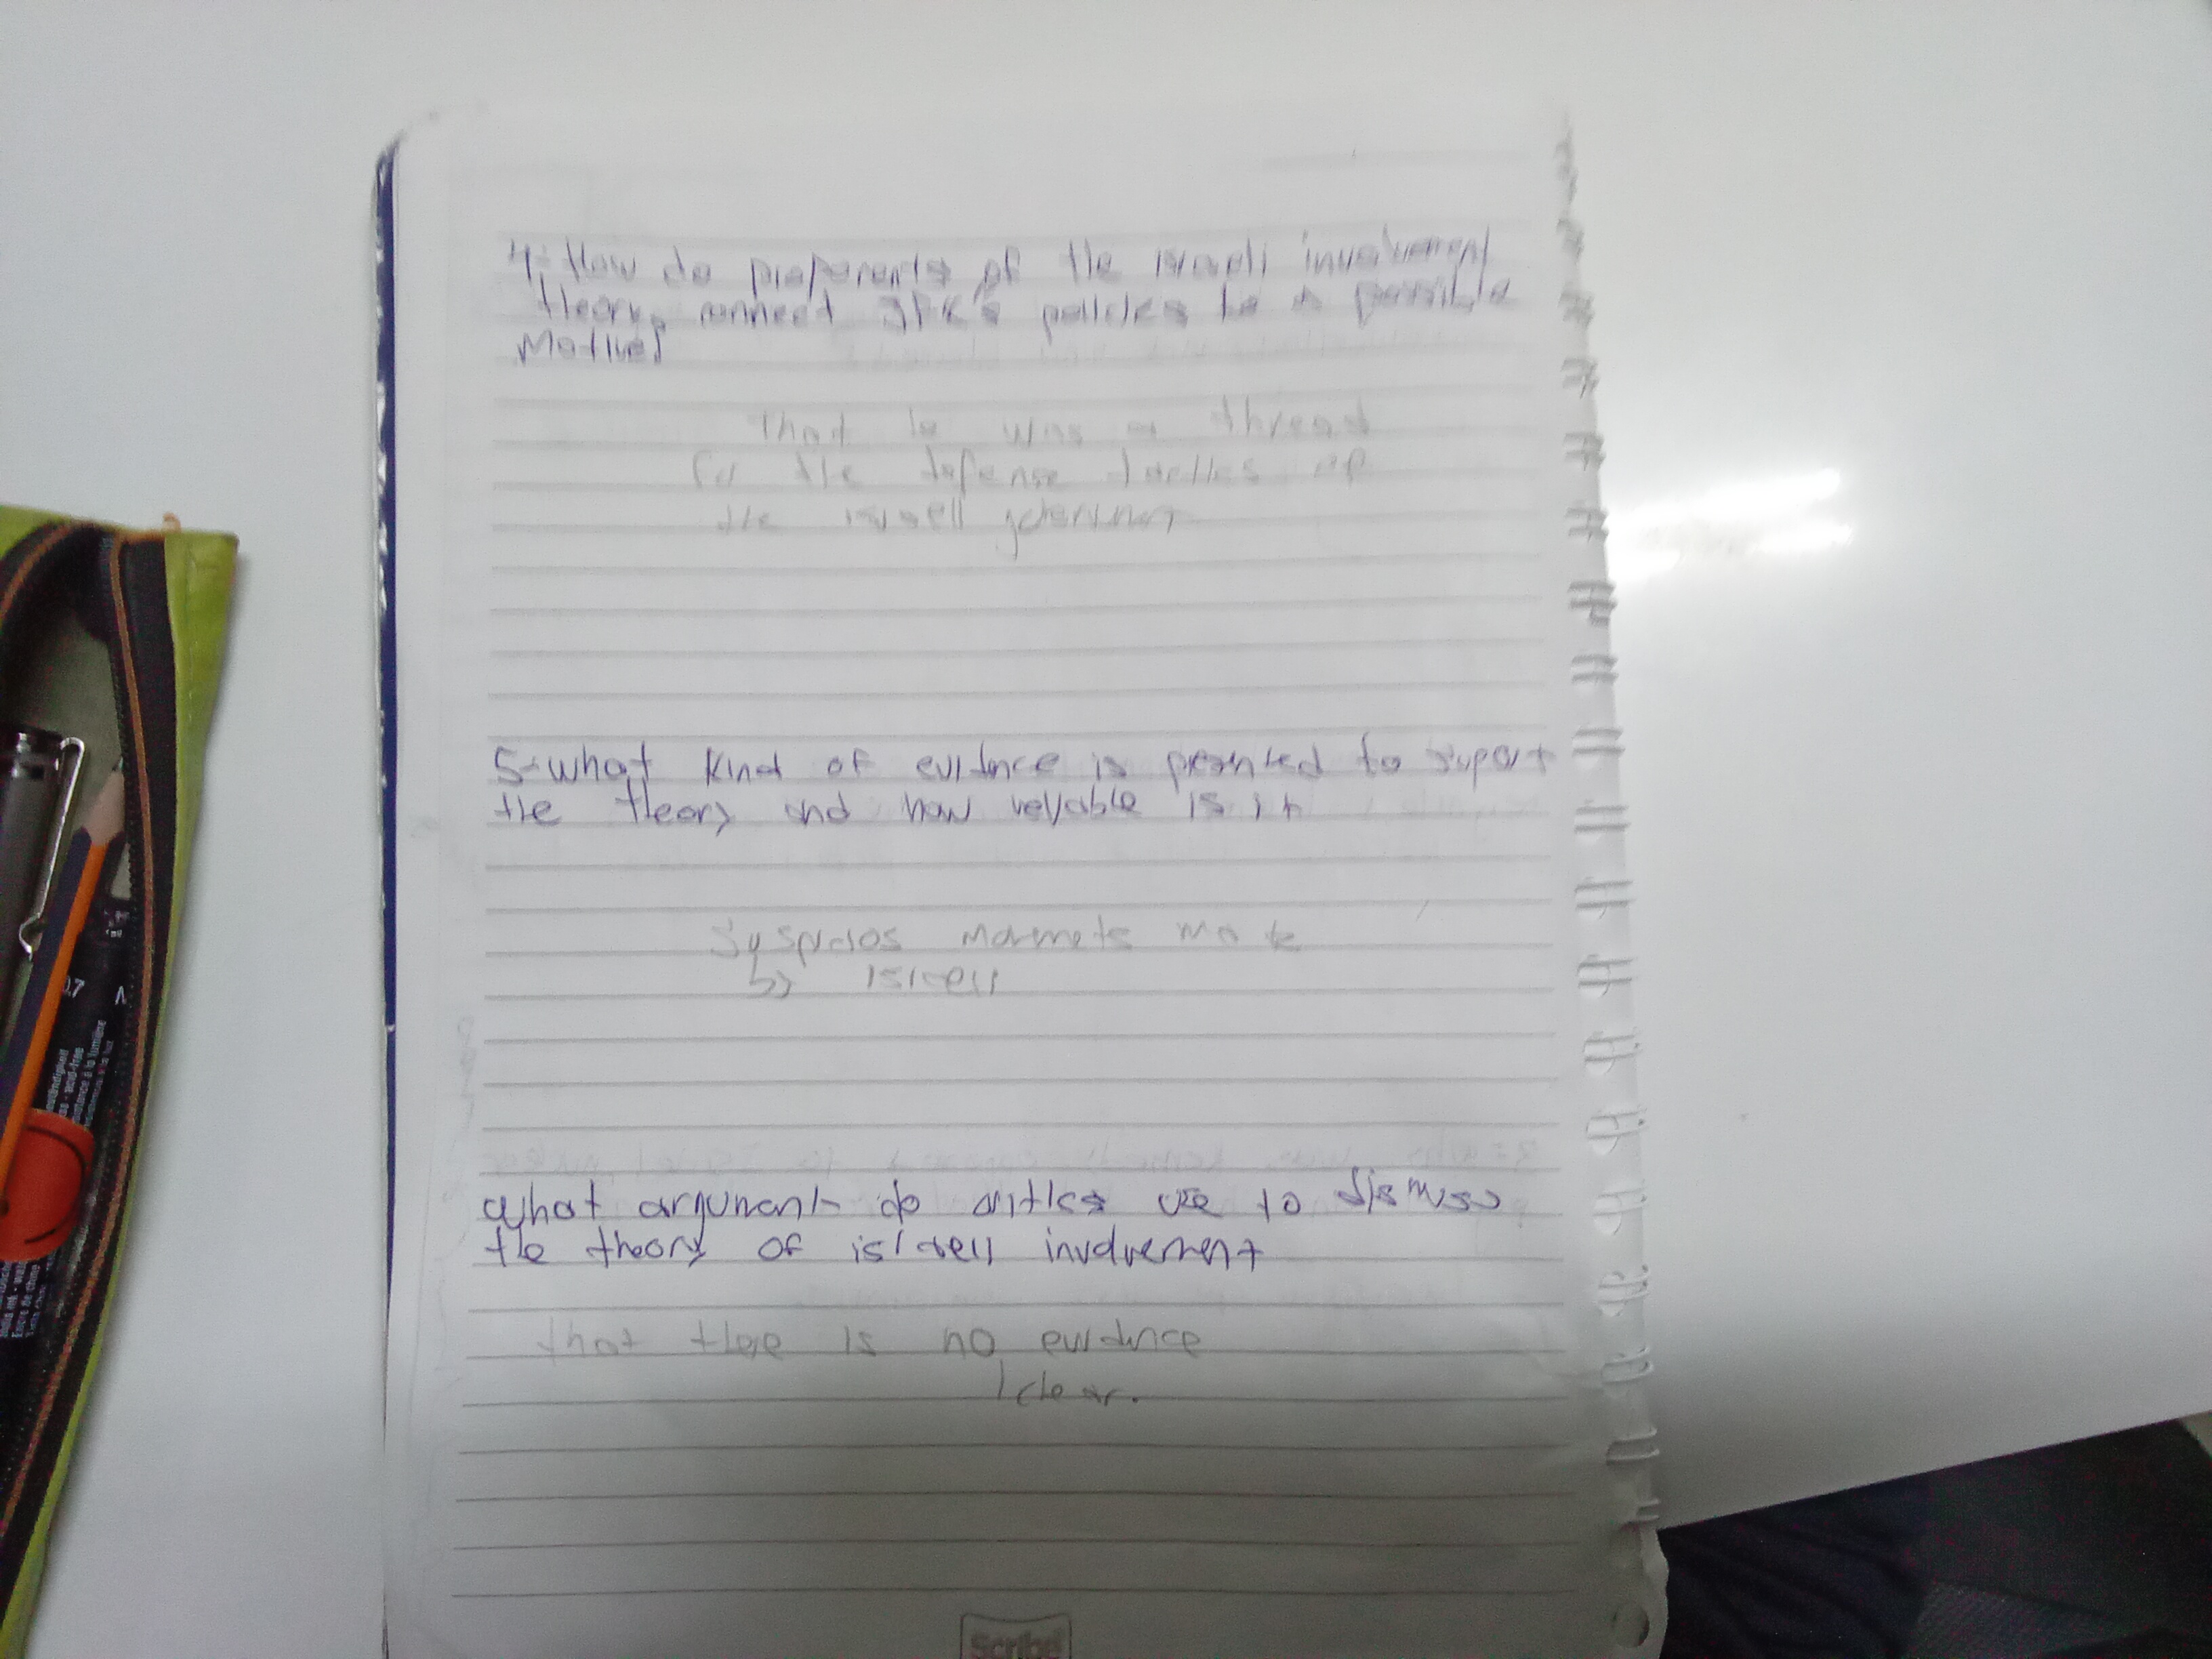 4- How do proponents of the israeli involvement
theory connect JFK's policies to a possible
Motive?
That le was a thread
for the defense tactics of
the israeli goverment
5- what kind of evidence is presented to suport
the theory and how reliable is it
Suspicios Movments made
by israeli
What argument do critics use to dismiss
the theory of israeli involvement
that there is no evidence
clear.
Scribe
0.7